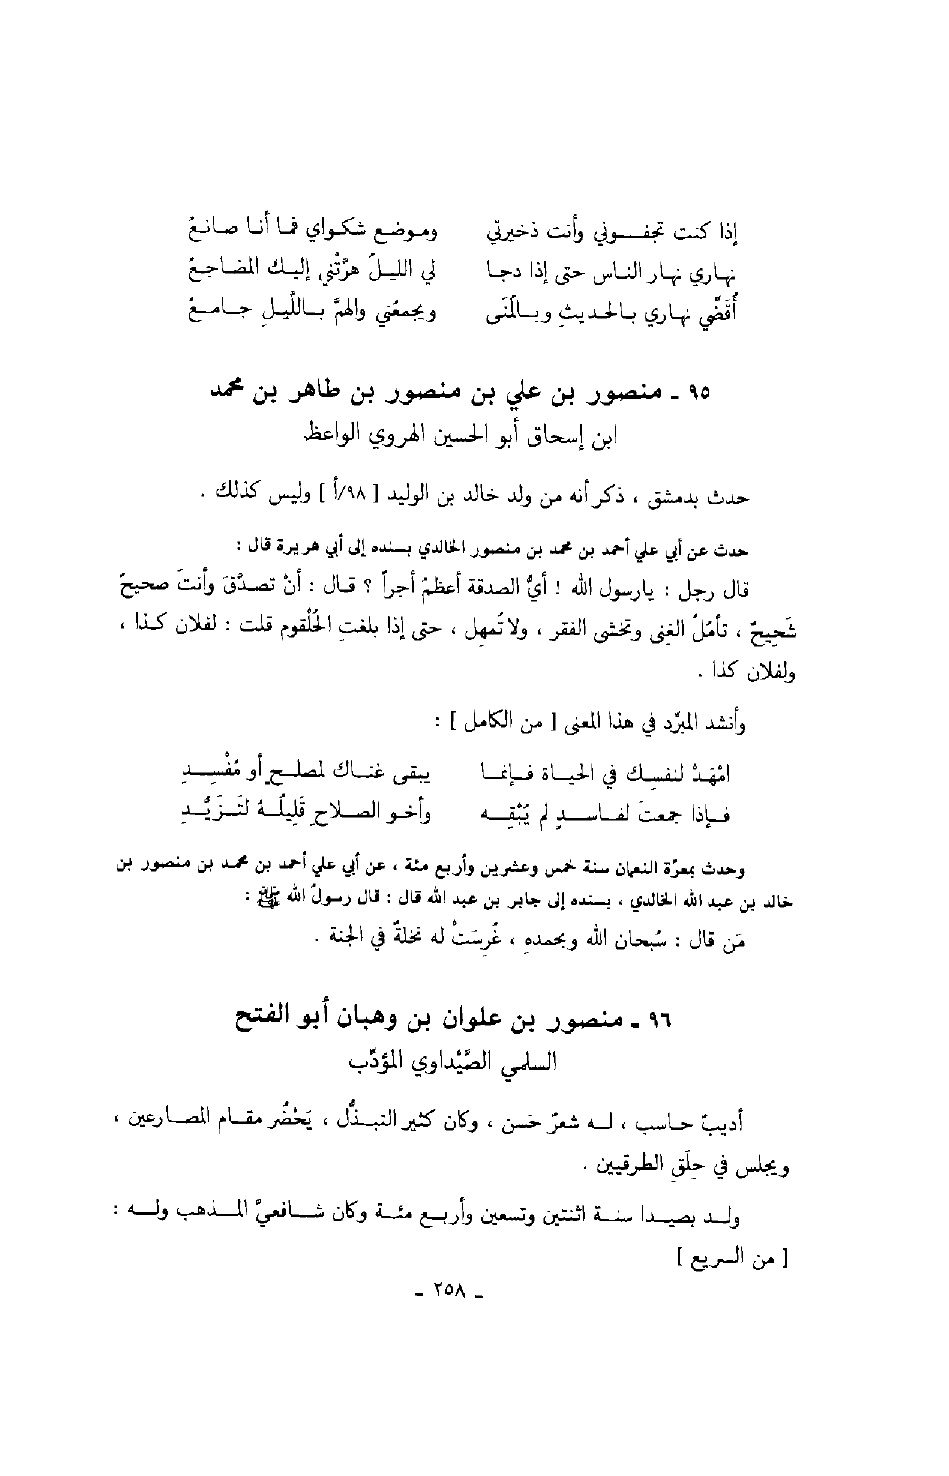 إذا كنت تجفـوني وأنت ذخيرتي وموضع شكواي فما أنا صانعُ
نهاري نهار الناس حتى إذا دجا لي الليلُ هزَّتْني إليك المضاجعُ
أُقَضِّي نهاري بالحديثِ وبالمُنَى ويجمعُني والهمَّ بالليلِ جامعُ
٩٥ - منصور بن علي بن منصور بن طاهر بن محمد
ابن إسحاق أبو الحسين الهروي الواعظ
حدث بدمشق ، ذكر أنه من ولد خالد بن الوليد [ ٩٨/أ ] وليس كذلك .
حدث عن أبي علي أحمد بن محمد بن منصور الخالدي بسنده إلى أبي هريرة قال :
قال رجل : يارسول الله ! أيُّ الصدقة أعظمُ أجراً ؟ قال : أنْ تصدَّقَ وأنتَ صحيحٌ
شَحِيحٌ ، تأمُلُ الغِنى وتخشى الفقر ، ولا تُمهِل ، حتى إذا بلغتِ الحُلْقوم قلت : لفلان كذا ،
ولفلان كذا .
وأنشد المبرِّد في هذا المعنى [ من الكامل ] :
امْهَدْ لنفسِك في الحياة فإنما يبقى غناك لمصلحٍ أو مُفْسِدِ
فإذا جمعتَ لفاسدٍ لم يُبْقِه وأخو الصلاحِ قَلِيلُهُ لتَزَيُّدِ
وحدث بمعرّة النعمان سنة خمس وعشرين وأربع مئة ، عن أبي علي أحمد بن محمد بن منصور بن
خالد بن عبد الله الخالدي ، بسنده إلى جابر بن عبد الله قال : قال رسولُ الله ﷺ :
مَن قال : سُبحان الله وبحمدهِ ، غُرِسَتْ له نخلةٌ في الجنة .
٩٦ - منصور بن علوان بن وهبان أبو الفتح
السلمي الصَّيْداوي المؤدِّب
أديبٌ حاسب ، له شعرٌ حَسن ، وكان كثير التبذُّل ، يَحْضُر مقام المصارعين ،
ويجلس في حِلَقِ الطرقيين .
ولد بصيدا سنة اثنتين وتسعين وأربع مئة وكان شافعيَّ المذهب وله :
[ من السريع ]
- ٢٥٨ -